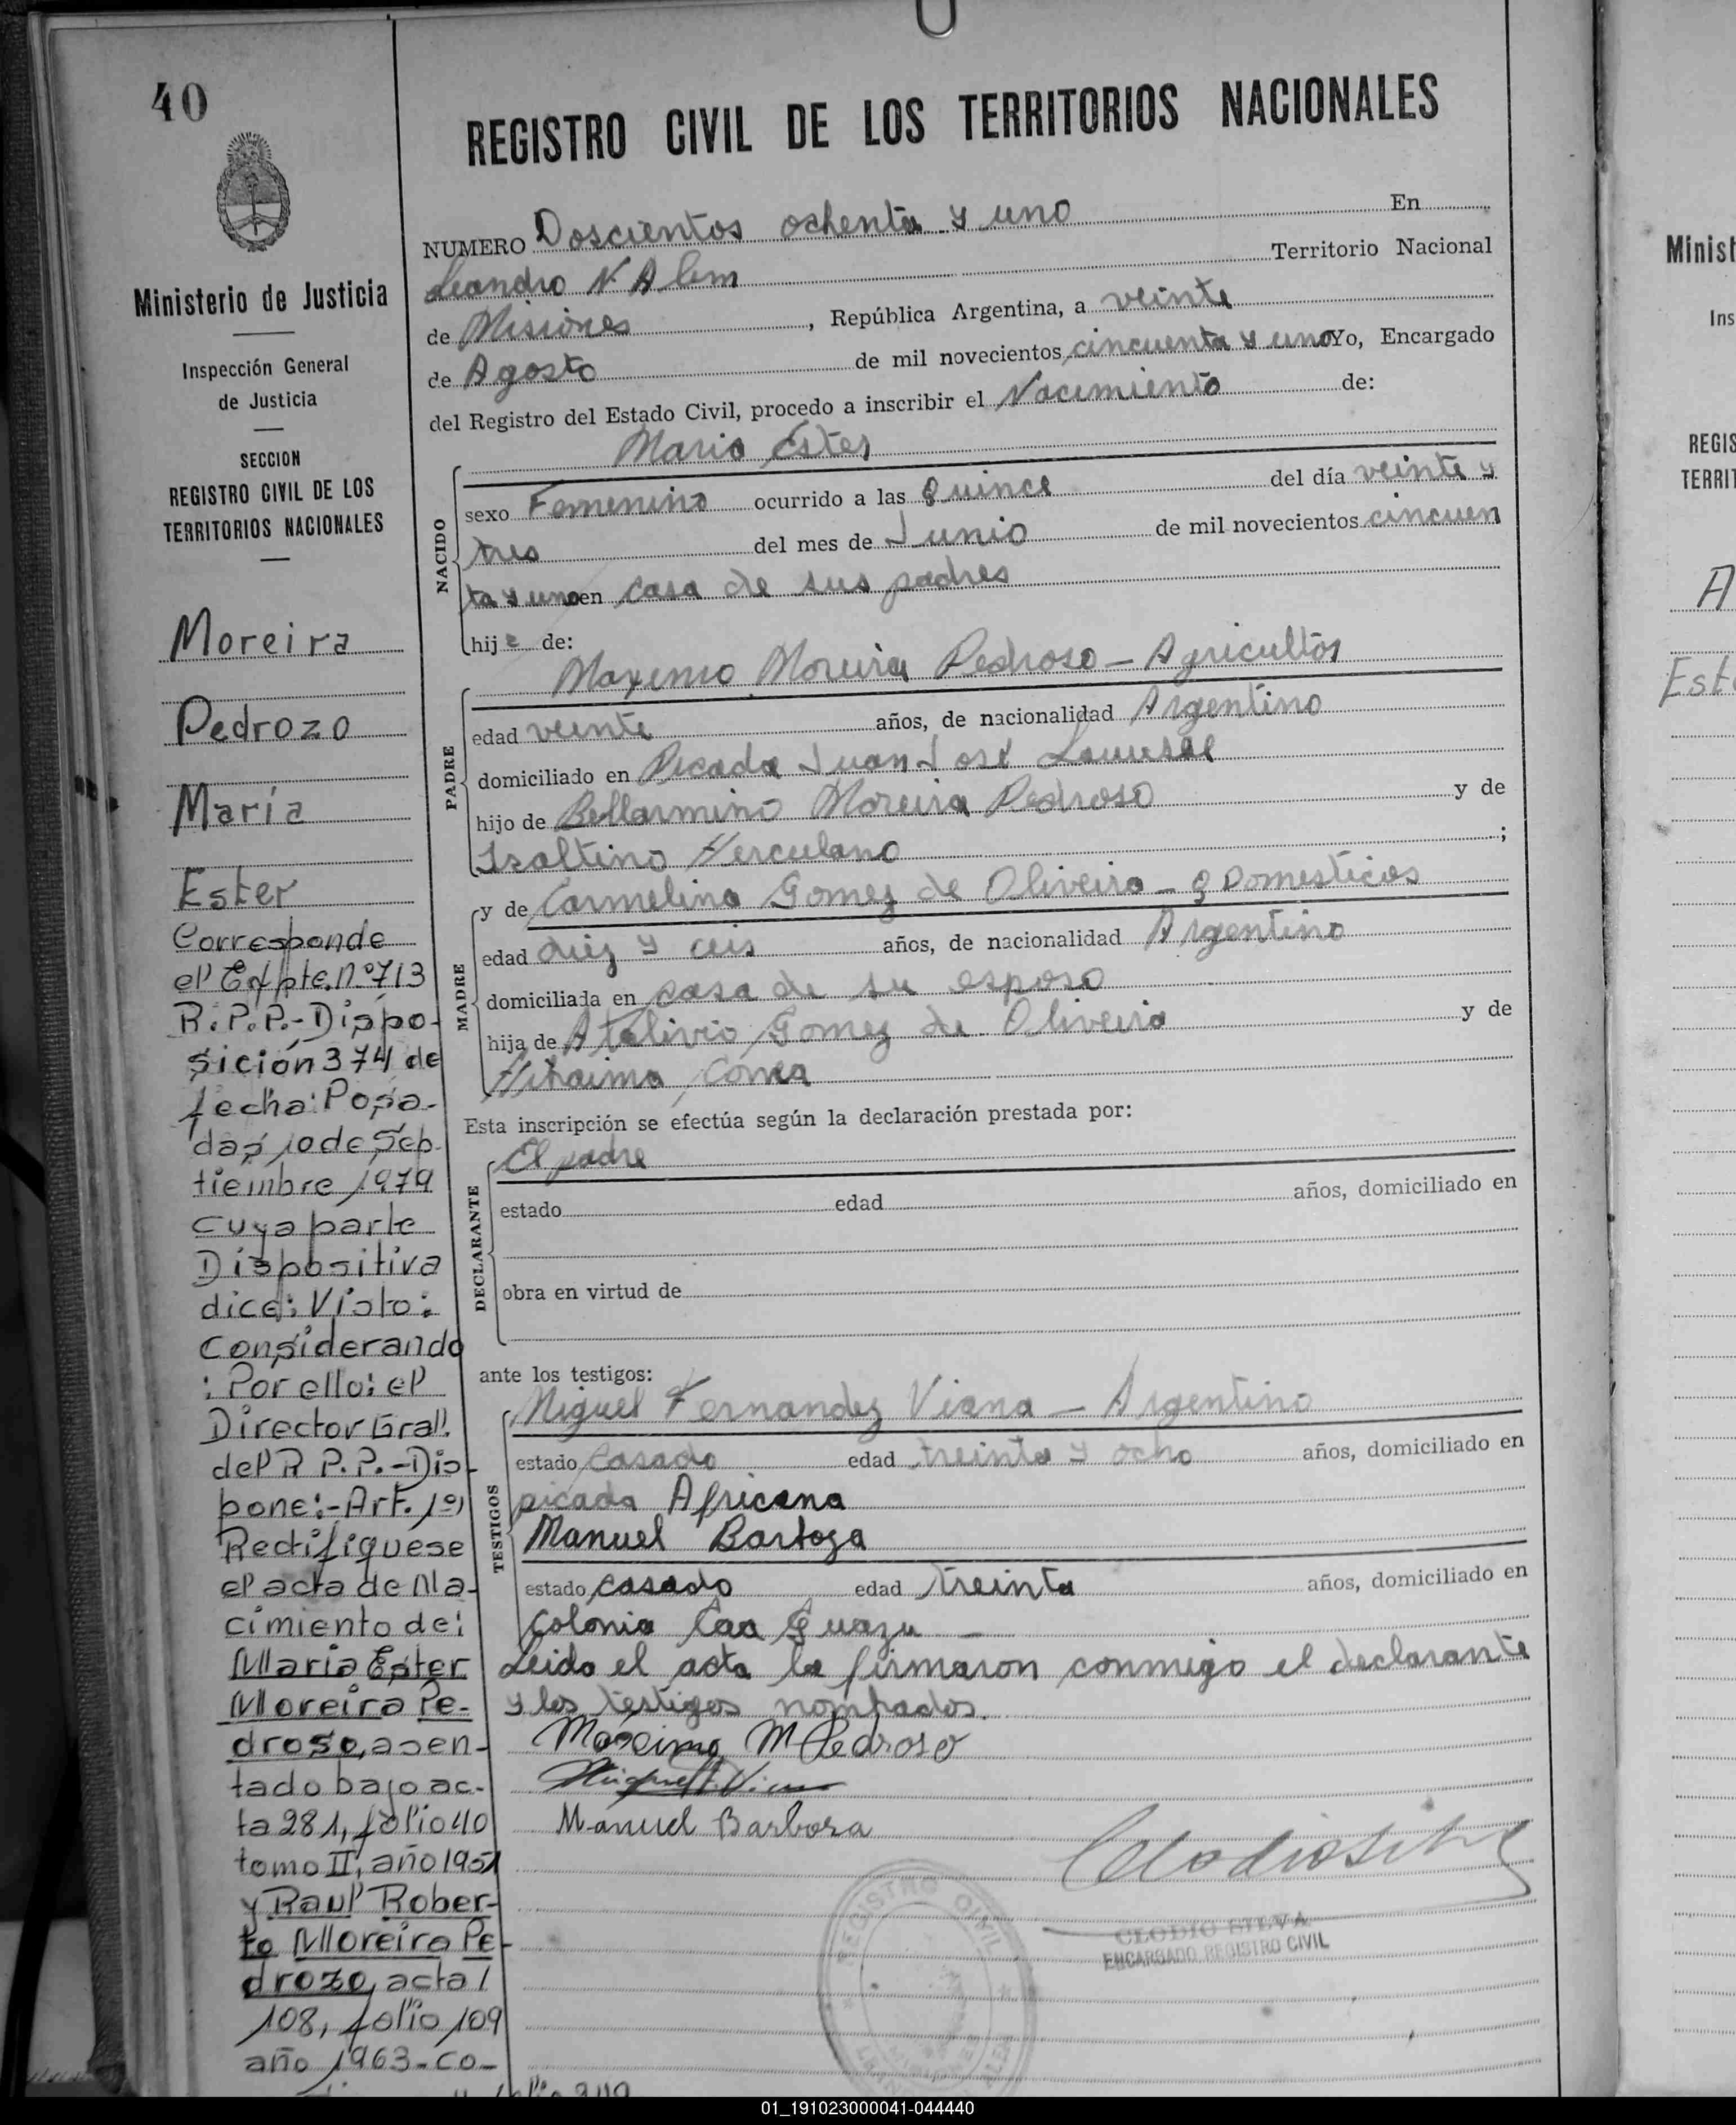 40
Ministerio de Justicia
Inspección General
de Justicia
SECCION
REGISTRO CIVIL DE LOS
TERRITORIOS NACIONALES
Moreira
Pedrozo
María
Ester
Corresponde
el Expte. Nº 713
R.P.P.-Dispo-
sición 374 de
fecha: Posa-
das, 10 de Seb-
tiembre 1979
cuya parte
Dispositiva
dice: Visto:
Considerando
: Por ello: el
Director Gral.
del R P.P.-Dis-
pone:-Art. 1º)
Rectifiquese
el acta de Na-
cimiento de:
Maria Ester
Moreira Pe-
droso, asen-
tado bajo ac-
ta 281, folio 40
tomo II, año 1951
y Raul Rober-
to Moreira Pe-
drozo, acta 1
108, folio 109
año 1963-co-
REGISTRO CIVIL DE LOS TERRITORIOS NACIONALES
NUMERO Doscientos ochenta y uno En
Leandro N Alem Territorio Nacional
de Misiones, República Argentina, a veinte
de Agosto de mil novecientos cincuenta y uno Yo, Encargado
del Registro del Estado Civil, procedo a inscribir el Nacimiento de:
Maria Ester
NACIDO
sexo Femenino ocurrido a las quince del día veinte y
tres del mes de Junio de mil novecientos cincuen
ta y uno en casa de sus padres
hija de:
Maximo Moreira Pedroso - Agricultor
PADRE
edad veinte años, de nacionalidad Argentino
domiciliado en Picada Juan José
hijo de Bellarmino Moreira Pedroso y de
Isaltino Herculano ;
y de Carmelina Gomez de Oliveira - q Domesticos
MADRE
edad diez y ceis años, de nacionalidad Argentino
domiciliada en casa de su esposo
hija de Atalivio Gomez de Oliveira y de
Esta inscripción se efectúa según la declaración prestada por:
El padre
DECLARANTE
estado edad años, domiciliado en
obra en virtud de
ante los testigos:
Miguel Fernandez Viana - Argentino
TESTIGOS
estado Casado edad treinta y ocho años, domiciliado en
picada Africana
Manuel Bartoza
estado casado edad treinta años, domiciliado en
Colonia Caa Guazu -
Leido el acta la firmaron conmigo el declarante
y los testigos nombados.
Maximo M Pedroso
Manuel Barbosa
REGISTRO CIVIL
CLODIO SILVA
ENCARGADO REGISTRO CIVIL
Minist
Ins
REGIS
TERRIT
A
Est
01_191023000041-044440